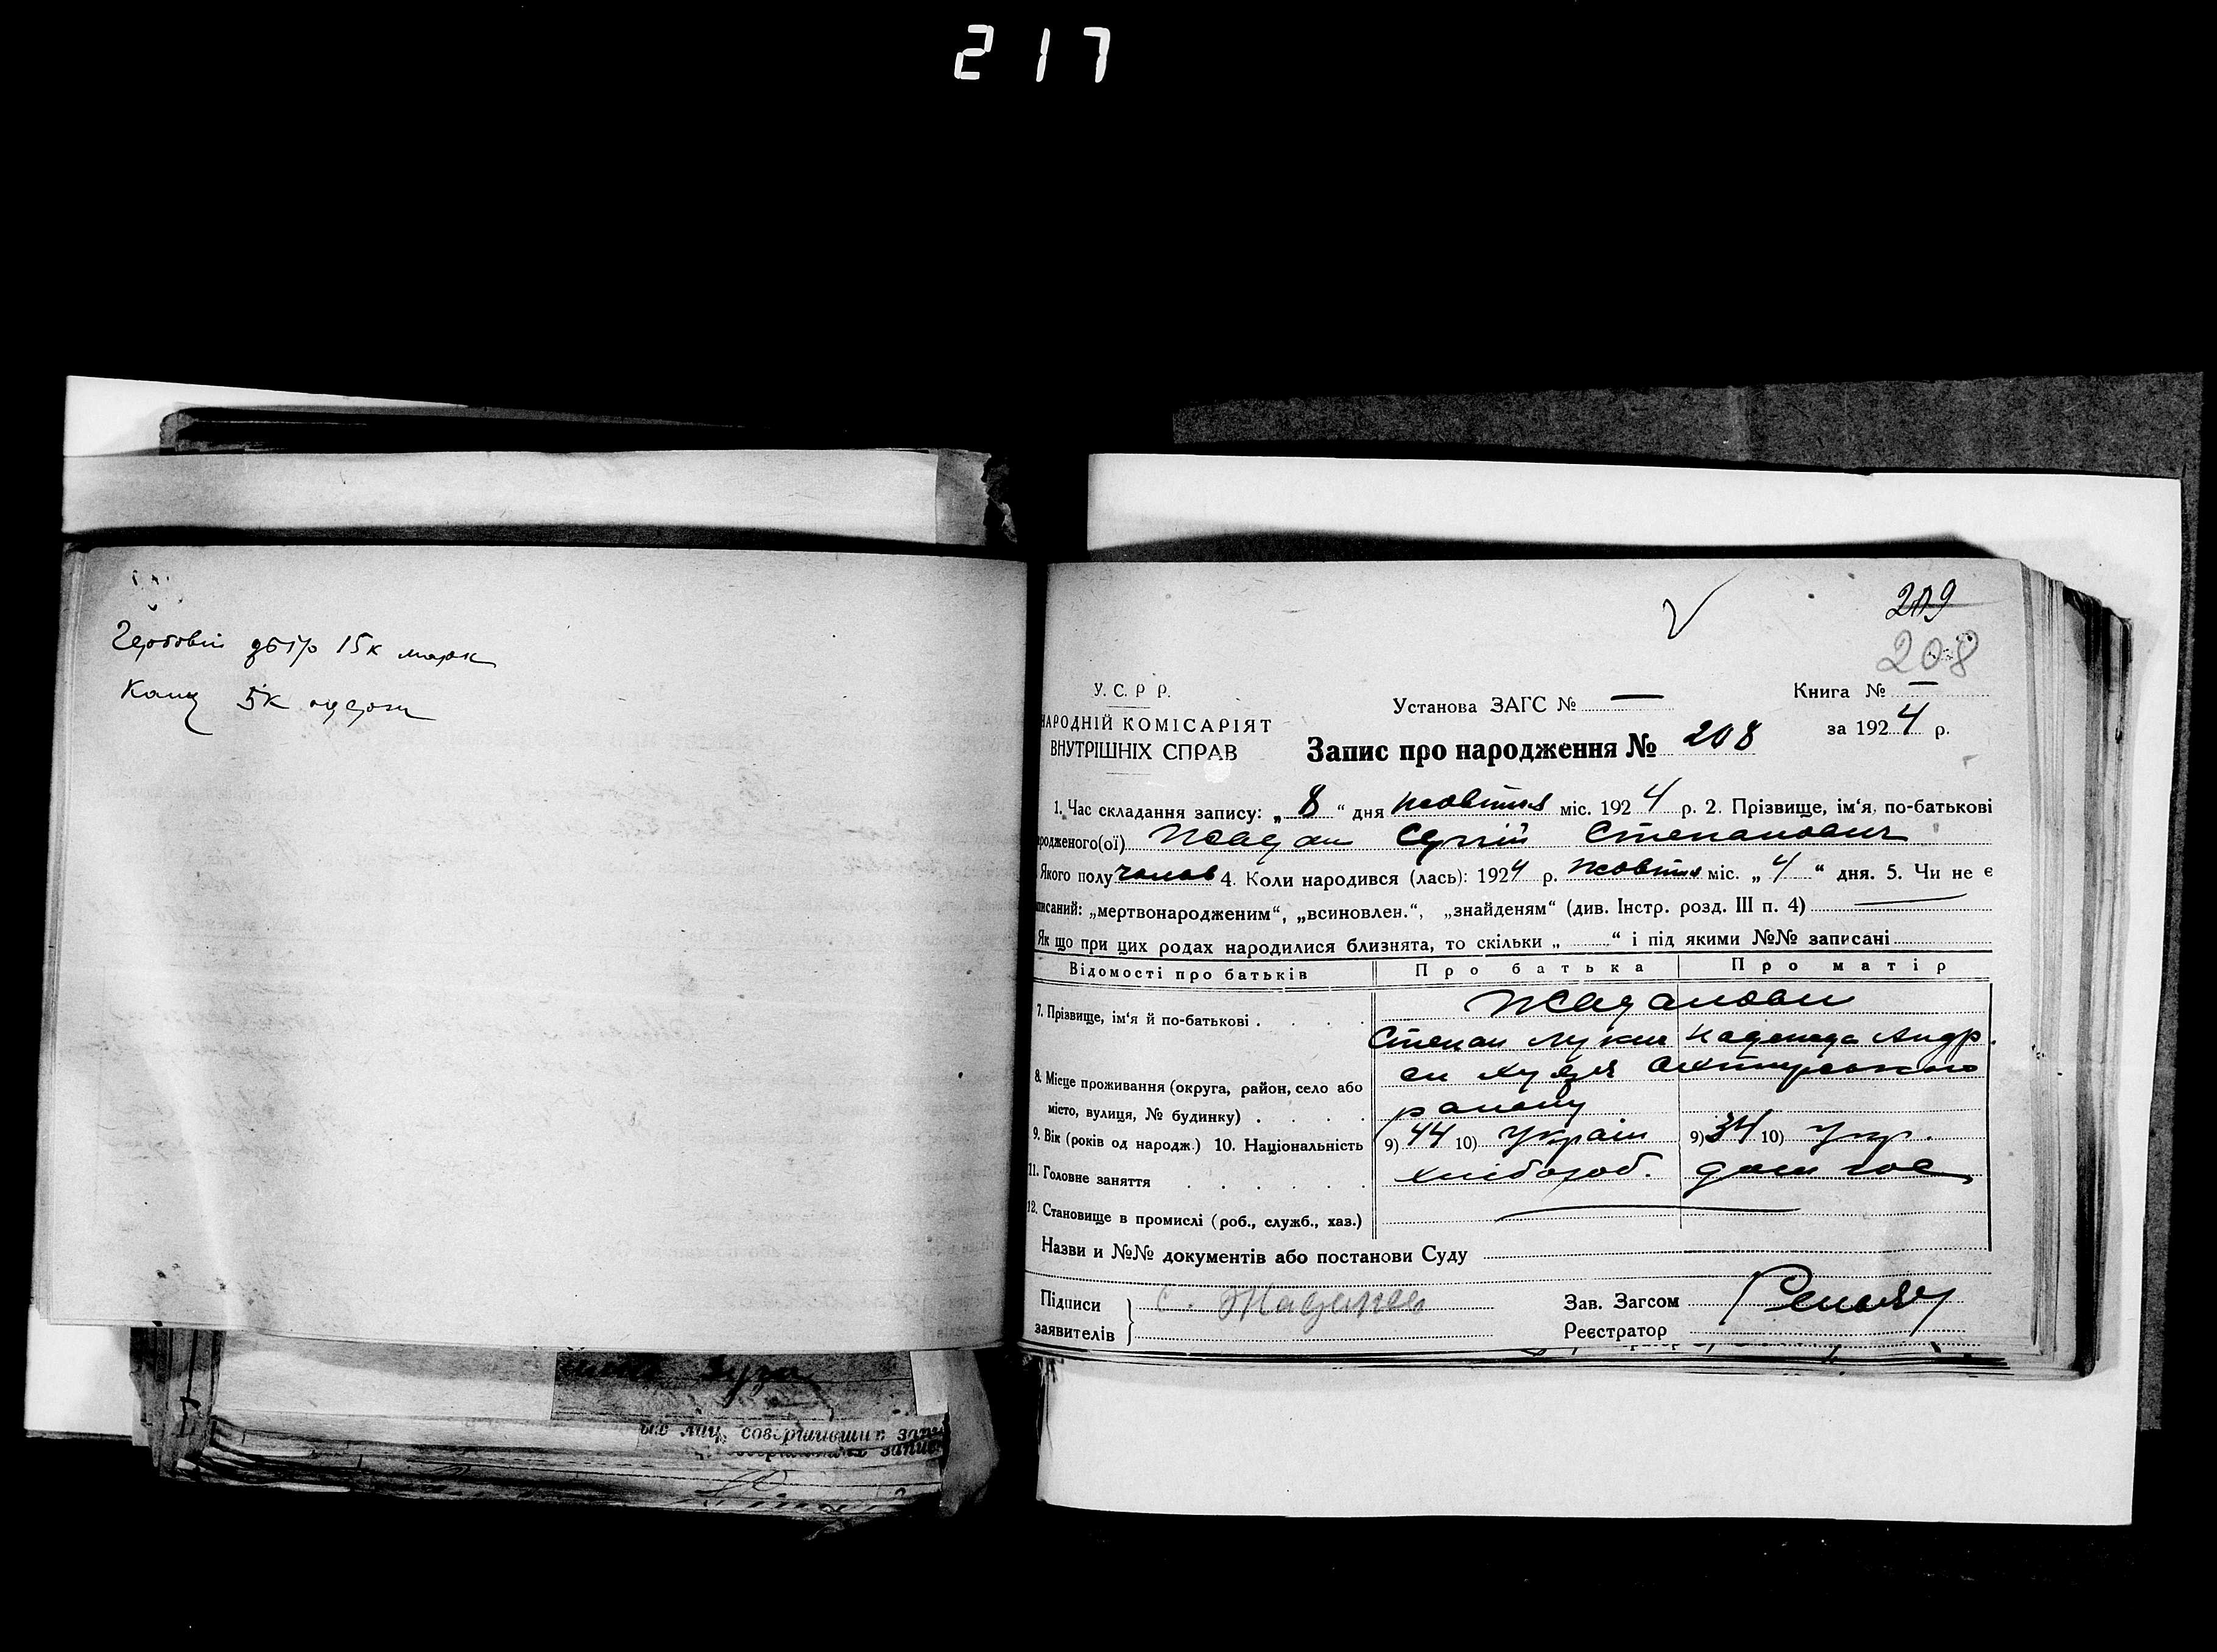 217
Гербовий збір 15к марк
Канц 5к
209
208
У. С. Р. Р.
НАРОДНІЙ КОМІСАРІЯТ
ВНУТРІШНІХ СПРАВ
Установа ЗАГС № —
Книга № —
за 1924 р.
Запис про народження № 208
1. Час складання запису: „ 8 “ дня жовтня міс. 1924 р. 2. Прізвище, ім‘я, по-батькові
родженого(ої) Жадан Сергій Степанович
Якого полу чолов 4. Коли народився (лась): 1924 р. жовтня міс. „ 4 “ дня. 5. Чи не є
писаний: „мертвонародженим“, „всиновлен.“, „знайденям“ (див. Інстр. розд. III п. 4) —
Як що при цих родах народилися близнята, то скільки „ “ і під якими №№ записані
Відомості про батьків Про батька Про матір
7. Прізвище, ім‘я й по-батькові . . . . Жаданови
Степан Лукич Надежда Андр.
8. Місце проживання (округа, район, село або місто, вулиця, № будинку) . . . . Охтирського
району
9. Вік (років од народж.) 10. Національність 9) 44 10) Україн 9) 34 10) Укр.
11. Головне заняття . . . . . . хлібороб. дом гос
12. Становище в промислі (роб., служб., хаз.) —
Назви и №№ документів або постанови Суду
Підписи
заявителів
С. Жаданов
Зав. Загсом
Реєстратор
лиц, совершивших запи